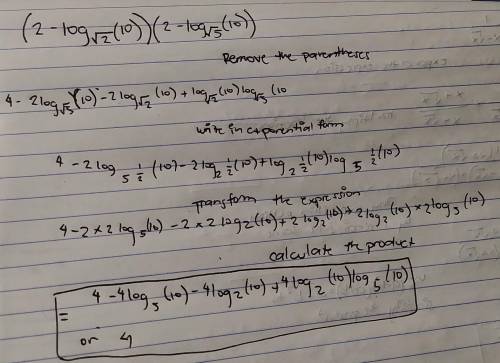 (2 - log√2 (10))(2 - log√5 (10))
Remove the parentheses
4 - 2log√5 (10) - 2log√2 (10) + log√2 (10) log√5 (10
write in exponential form
4 - 2log 5 ½ (10) - 2log 2 ½ (10) + log 2 ½ (10) log 5 ½ (10)
transform the expression
4 - 2 × 2log5 (10) - 2 × 2log2 (10) + 2log2 (10) + 2log2 (10) × 2log5 (10)
calculate the product
= 4 - 4log5 (10) - 4log2 (10) + 4log2 (10) log5 (10)
or 4